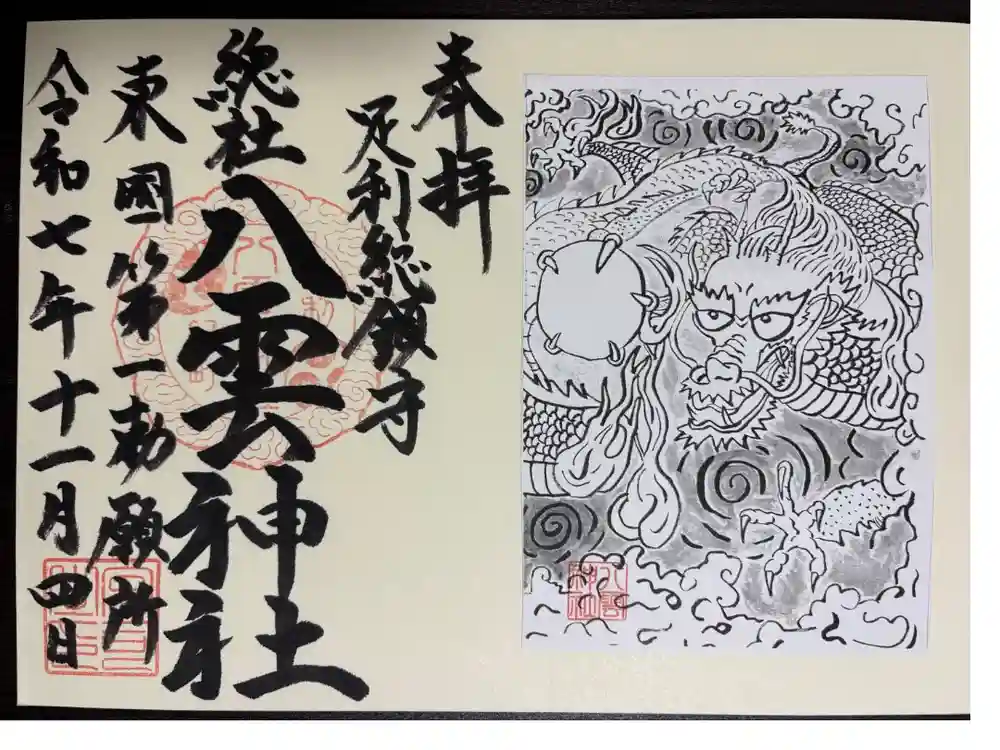 奉拝
足利總領守
總社
八雲神社
東國第一勅願所
令和七年十一月四日
八雲神社